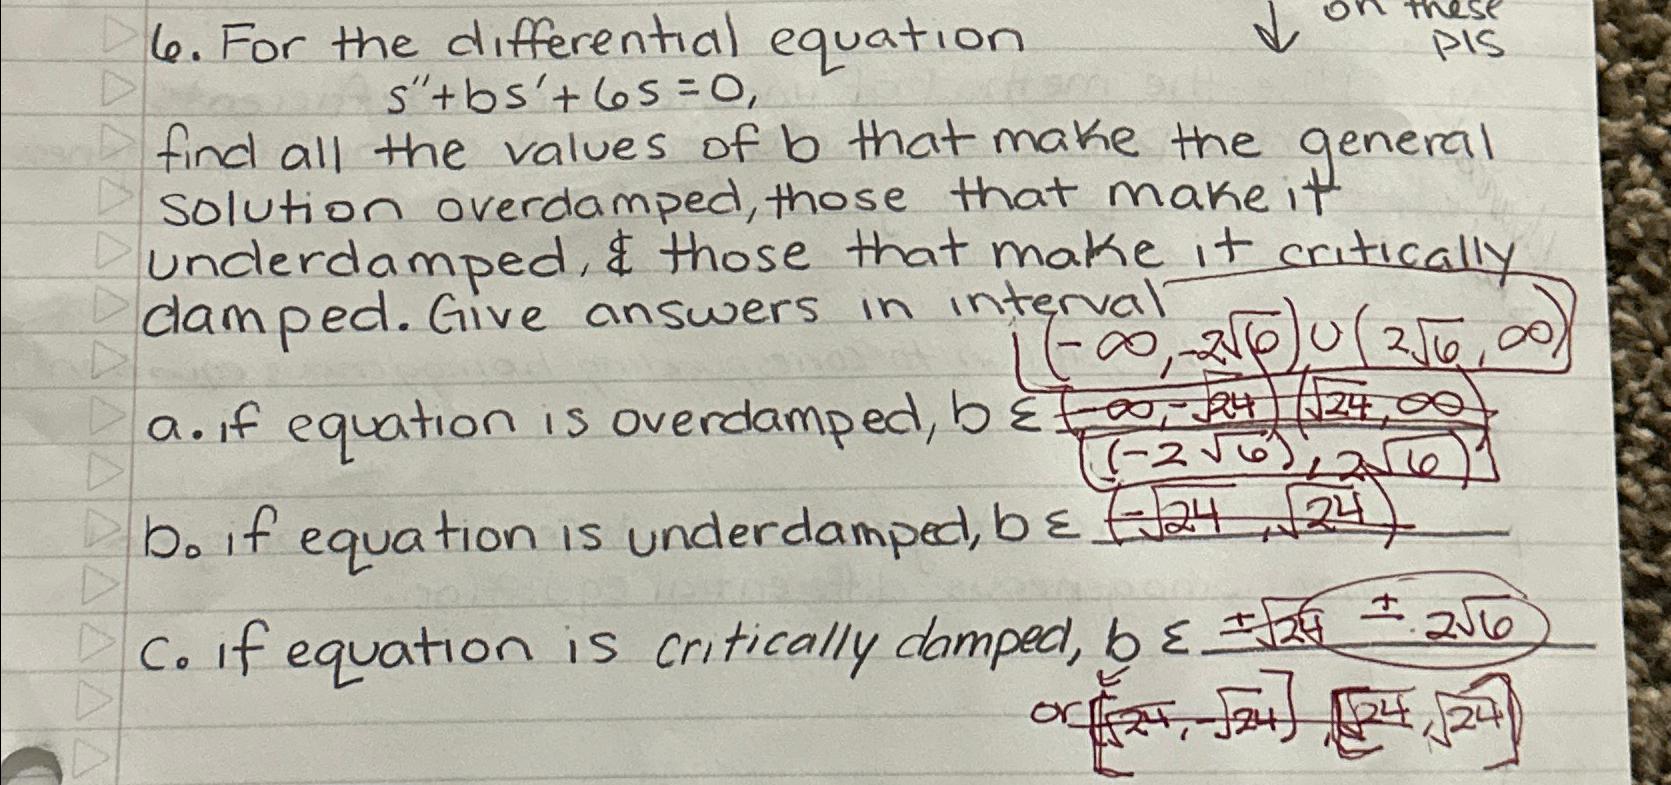 on these
↓ pls
6. For the differential equation
s''+bs'+6s=0,
find all the values of b that make the general
solution overdamped, those that make it
underdamped, & those that make it critically
damped. Give answers in interval
(-∞,-2√6)∪(2√6,∞)
a. if equation is overdamped, b ε (-∞,-√24) (√24,∞)
(-2√6),2√6)
b. if equation is underdamped, b ε (-√24,√24)
c. if equation is critically damped, b ε ±√24 ±2√6
or [√24,-√24],[√24,√24]